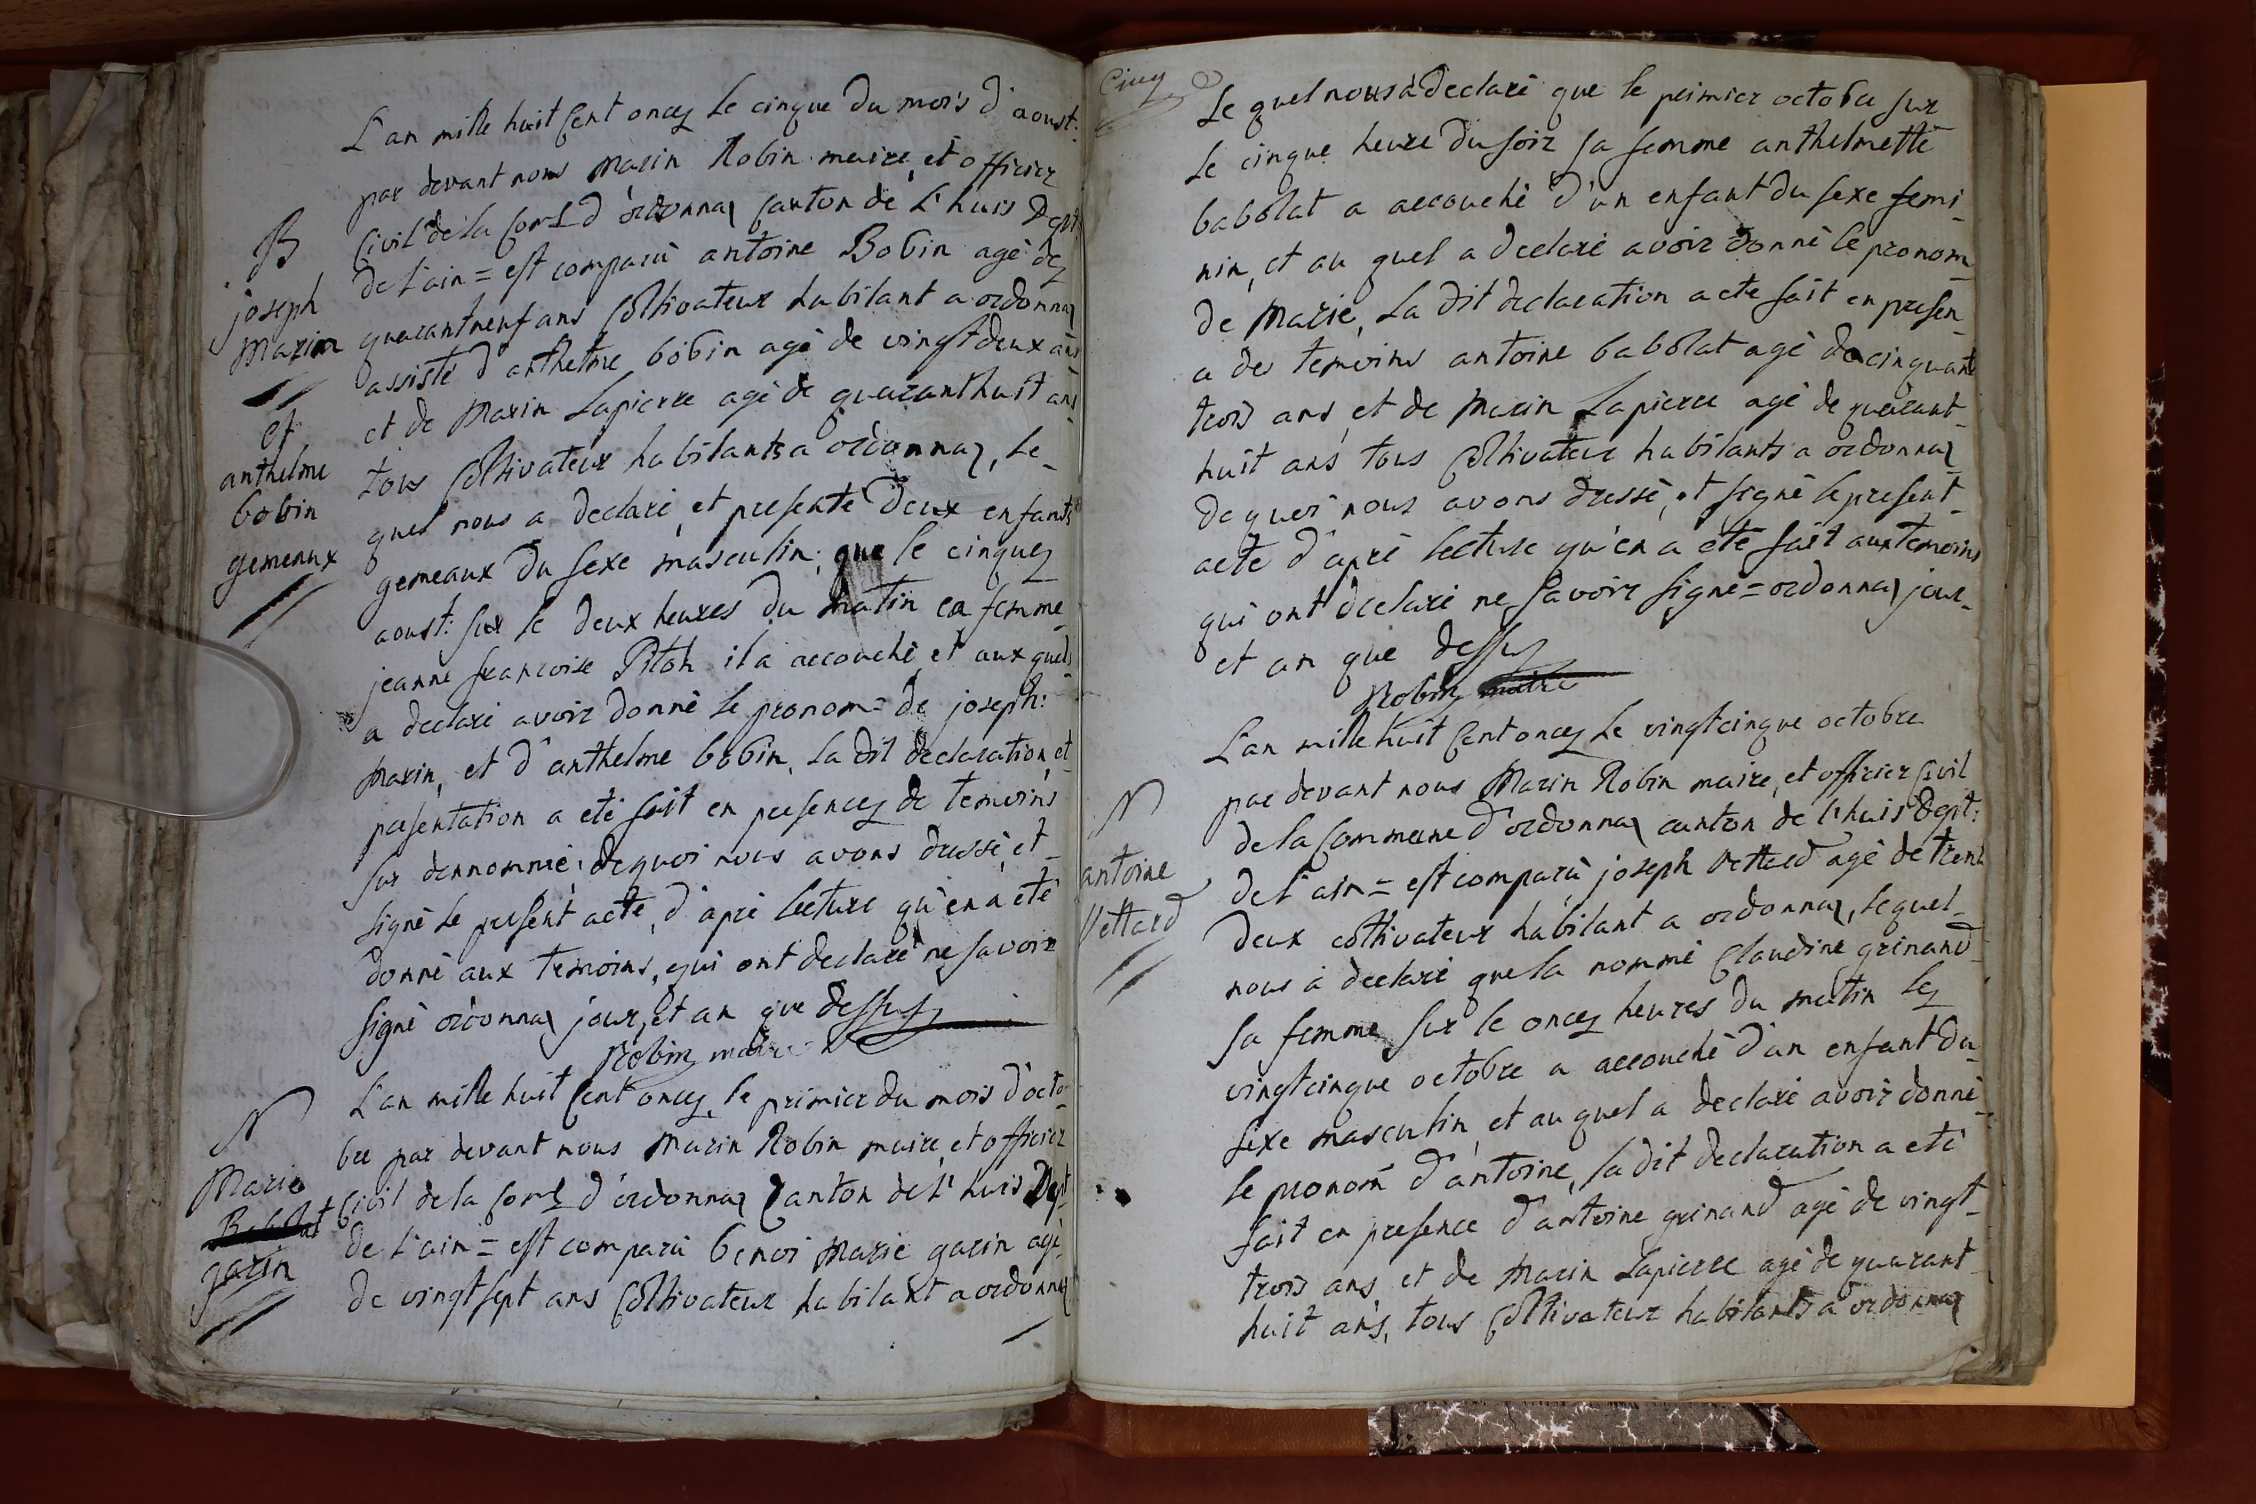 B
joseph
Marin
et
anthelme
bobin
gemeaux
L'an mille huit Cent onze Le cinque du mois d'aoust:
par devant nous Marin Robin maire, et officier
Civil de la Com.e d'ordonnaz Canton de L'huis Dept.
de L'ain = est comparù antoine Bobin agè de
quarantneuf ans Coltivateur habitant a ordonnaz
assisté d'anthelme bobin agè de vingtdeux ans
et de Marin Lapierre agè de quaranthuit ans
tous Coltivateur habitants a ordonnaz, Le-
quel nous a declaré, et presenté deux enfants
gemeaux du sexe masculin; que le cinque
aoust: sur le deux heures du matin ca femme
jeanne francoise Pitoh il a accouché, et aux quels
a declaré avoir donnè le pronom = de joseph:
Marin, et d'anthelme bobin, La dit declaration, et
presentation a eté fait en presence de temoins
sur dennommé: de quoi nous avons dressè, et
signè Le present acte, d'aprè lecture qu'en a eté
donnè aux temoins, qui ont declaré ne savoir
signè ordonnaz jour, et an que dessus
Robin maire
N
Marie
Babolat
garin
L'an mille huit Cent onze, le primier du mois d'octo-
bre par devant nous Marin Robin maire, et officier
Civil de la Com.e d'ordonnaz Canton de L'huis Dept
de L'ain = est comparù benoi Marie garin agè
de vingtsept ans Coltivateur habitant a ordonnaz
Cinq
Le quel nous à declaré que le primier octobre sur
le cinque heure du soir sa femme anthelmette
babolat a accouché d'un enfant du sexe femi-
nin, et au quel a declaré avoir donnè le pronom
de Marie, La dit declaration a ete fait en presen-
a des temoins antoine babolat agè de cinquant
trois ans, et de Marin Lapierre agè de quarant-
huit ans tous Coltivateur habitants a ordonnaz
de quoi nous avons dressè, et signè le present-
acte d'aprè lecture qu'en a été fait aux temoins
qui ont declaré ne savoir signe = ordonnaz jour-
et an que dessus
Robin maire
N
antoine
Vettard
L'an mille huit Cent onze Le vingtcinque octobre
par devant nous Marin Robin maire, et officier Civil
de la Commune d'ordonnaz canton de l'huis Dept:
de L'ain = est comparù joseph Vettard agè de trent
deux coltivateur habitant a ordonnaz, lequel-
nous à declaré que la nommé Claudine grinand
sa femme sur le onze heures du matin le
vingtcinque octobre a accouché d'un enfant du
sexe masculin, et au quel a declaré avoir donnè-
le pronom d'antoine, la dit declaration a eté
fait en presence d'antoine grinand agè de vingt-
trois ans, et de Marin Lapierre agè de quarant
huit ans, tous Coltivateur habitants a ordonnaz